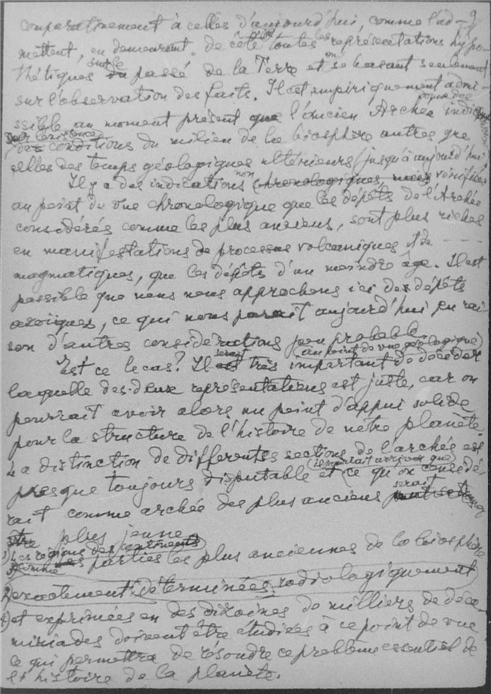 comparativement à celles d'aujourd'hui, comme l'ad- 9
mettent, en demeurant, de côté toutes les représentations hypo-
thétiques sur le passé de la Terre et se basant seulement
sur l'observation des faits. Il est empiriquement admi-
ssible au moment présent que l'ancien Archée
conditions du milieu de la biosphère autres que
celles des temps géologiques ultérieurs jusqu'à aujourd'hui
Il y a des indications non chronologiques vérifiées
au point de vue chronologique que les dépôts de l'Archée
considérés comme les plus anciens, sont plus riches
en manifestations de processus volcaniques et de
magmatiques, que les dépôts d'un moindre âge. Il est
possible que nous nous approchons ici des dépôts
azoïques, ce qui nous parait aujourd'hui en rai-
son d'autres considérations peu probable.
Est ce le cas? Il serait très important (au point de vue géologique) de décider
laquelle des deux représentations est juste, car on
pourrait avoir alors un point d'appui solide
pour la structure de l'histoire de notre planète.
La distinction de différentes sections de l'archée est
presque toujours disputable et ce qu'on considé-
rait comme archée des plus anciens serait
être plus jeune
1) Les régions des parties les plus anciennes de la biosphère
déterminées radiologiquement
et exprimées en des dizaines de milliers de déca-
miriades doivent être étudiées à ce point de vue
ce qui permettra de résoudre ce problème essentiel de
l'histoire de la planète.